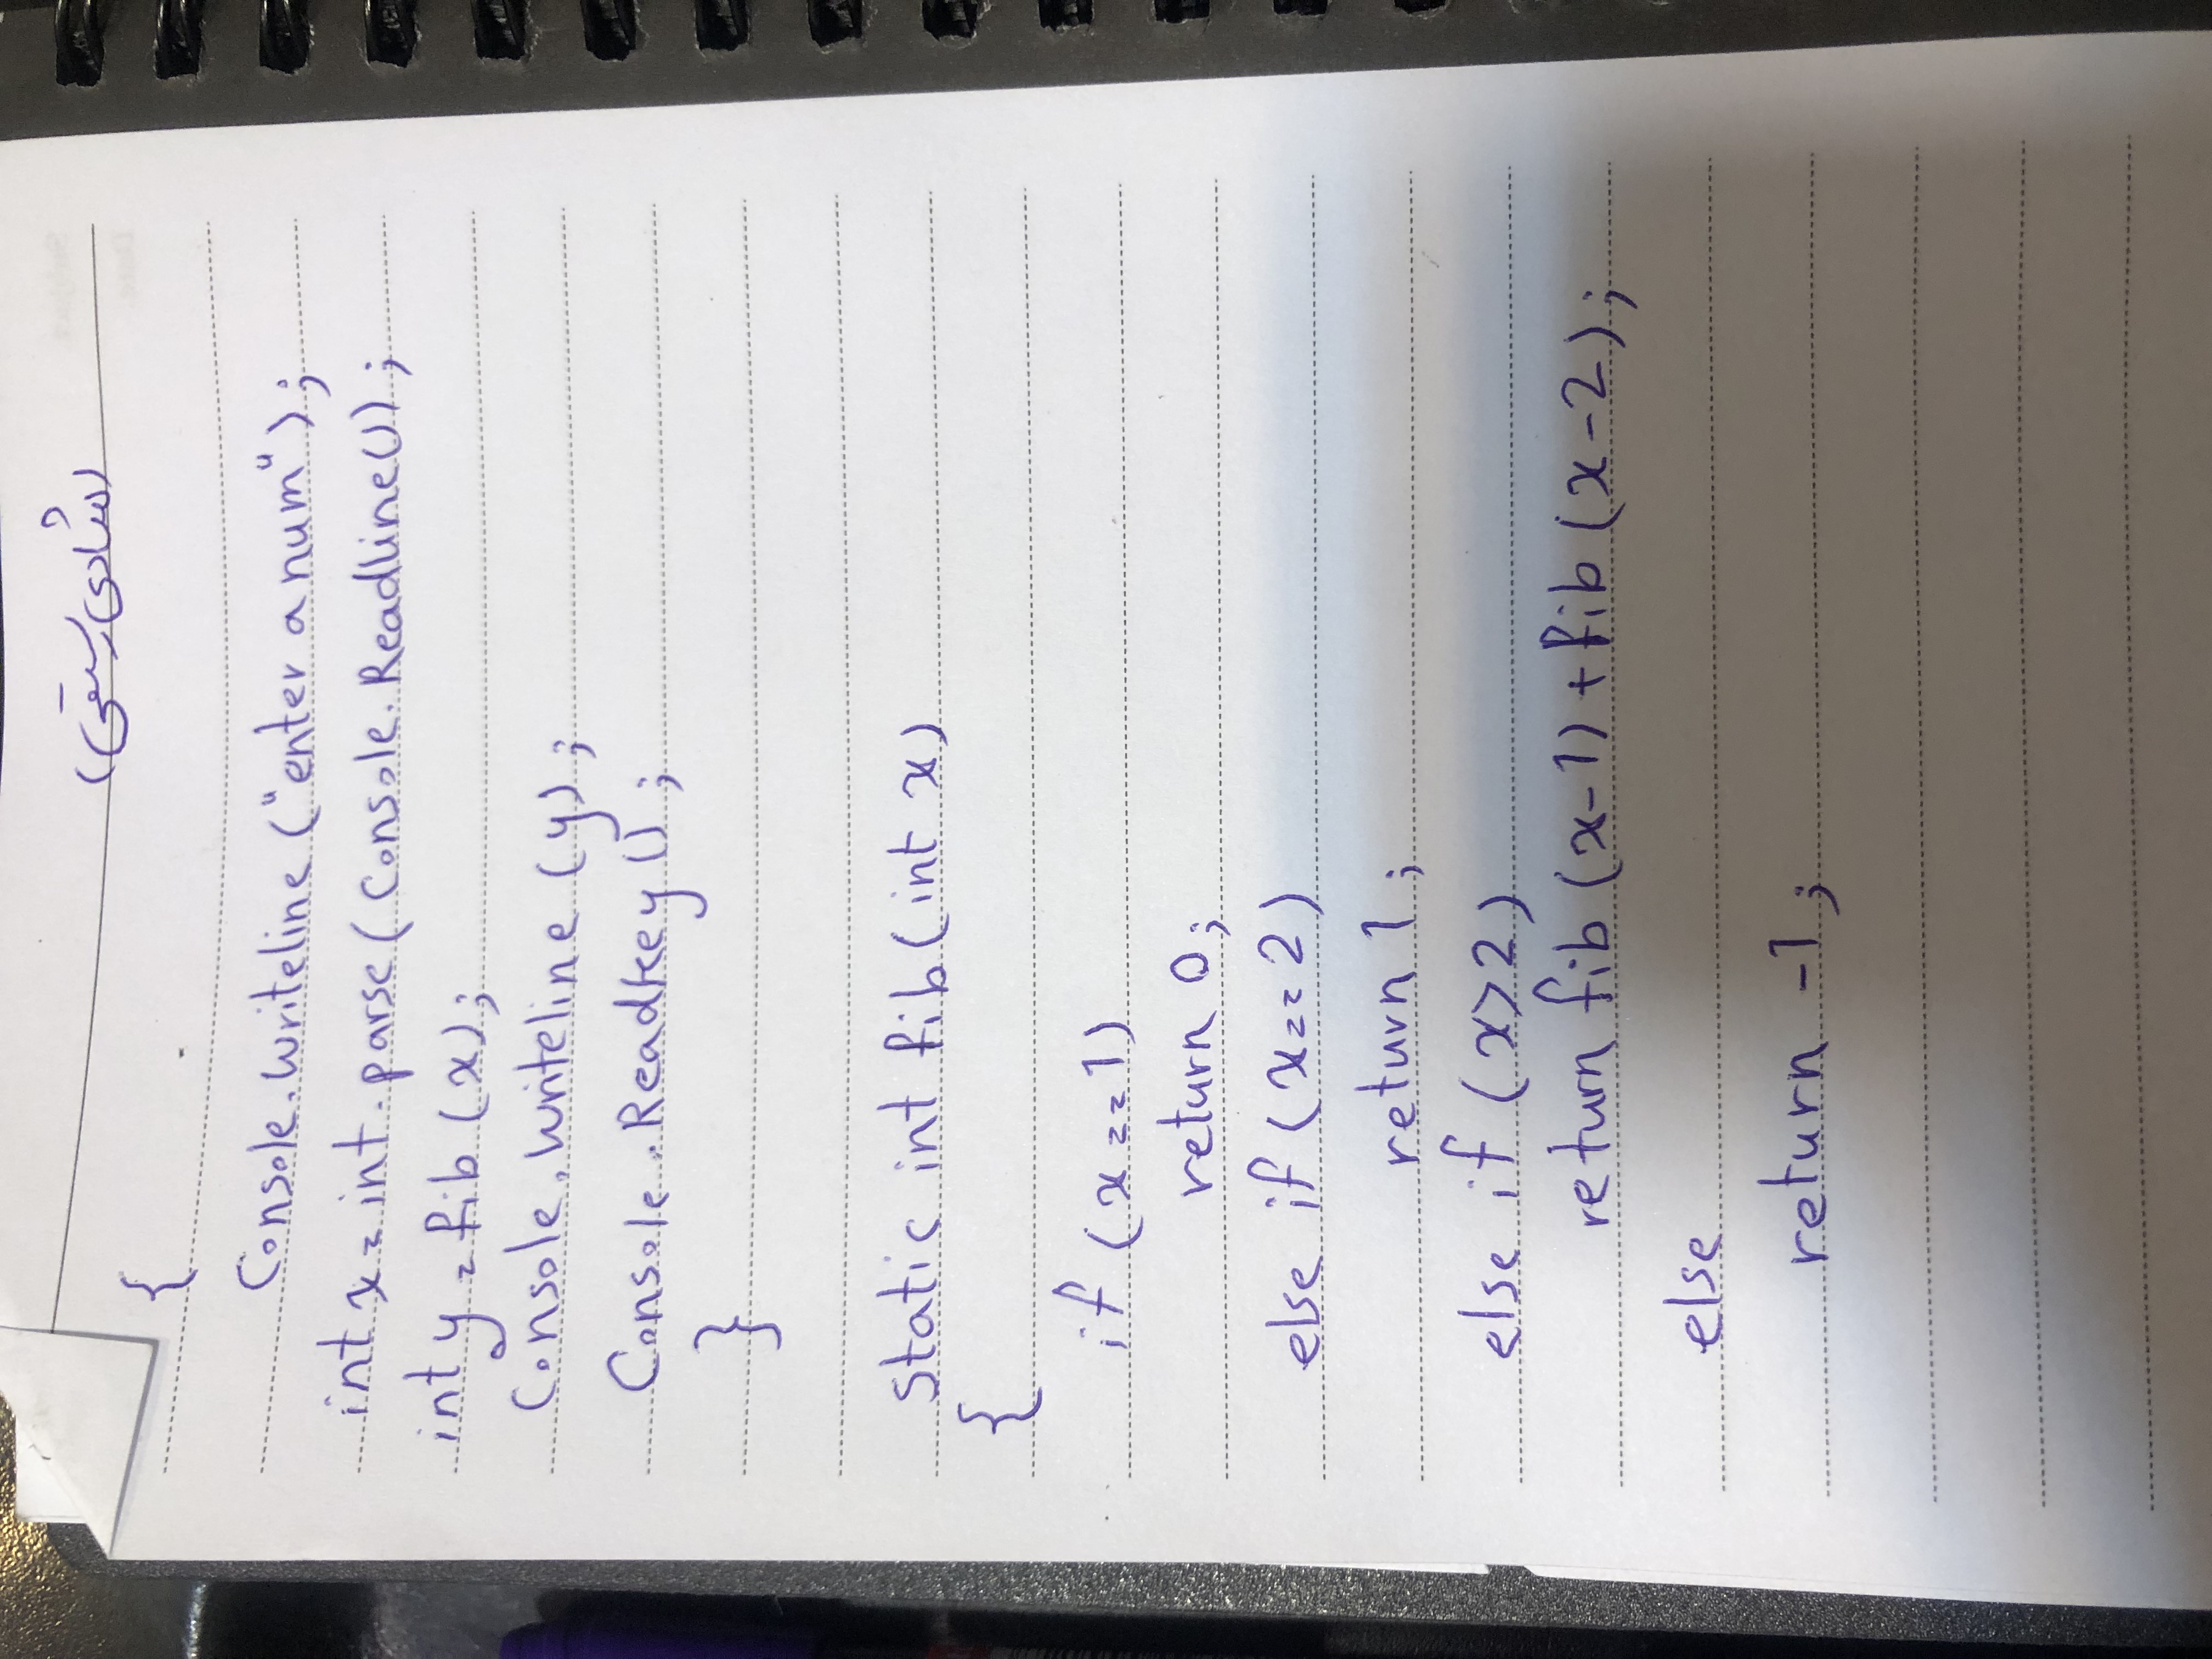 (شادی رستمی)
{
Console.writeline ("enter a num");
int x = int.parse(Console.Readline());
int y = fib (x);
Console.writeline (y);
Console.Readkey();
}
static int fib(int x)
{
if (x==1)
return 0;
else if (x==2)
return 1;
else if (x>2)
return fib (x-1) + fib (x-2);
else
return -1;